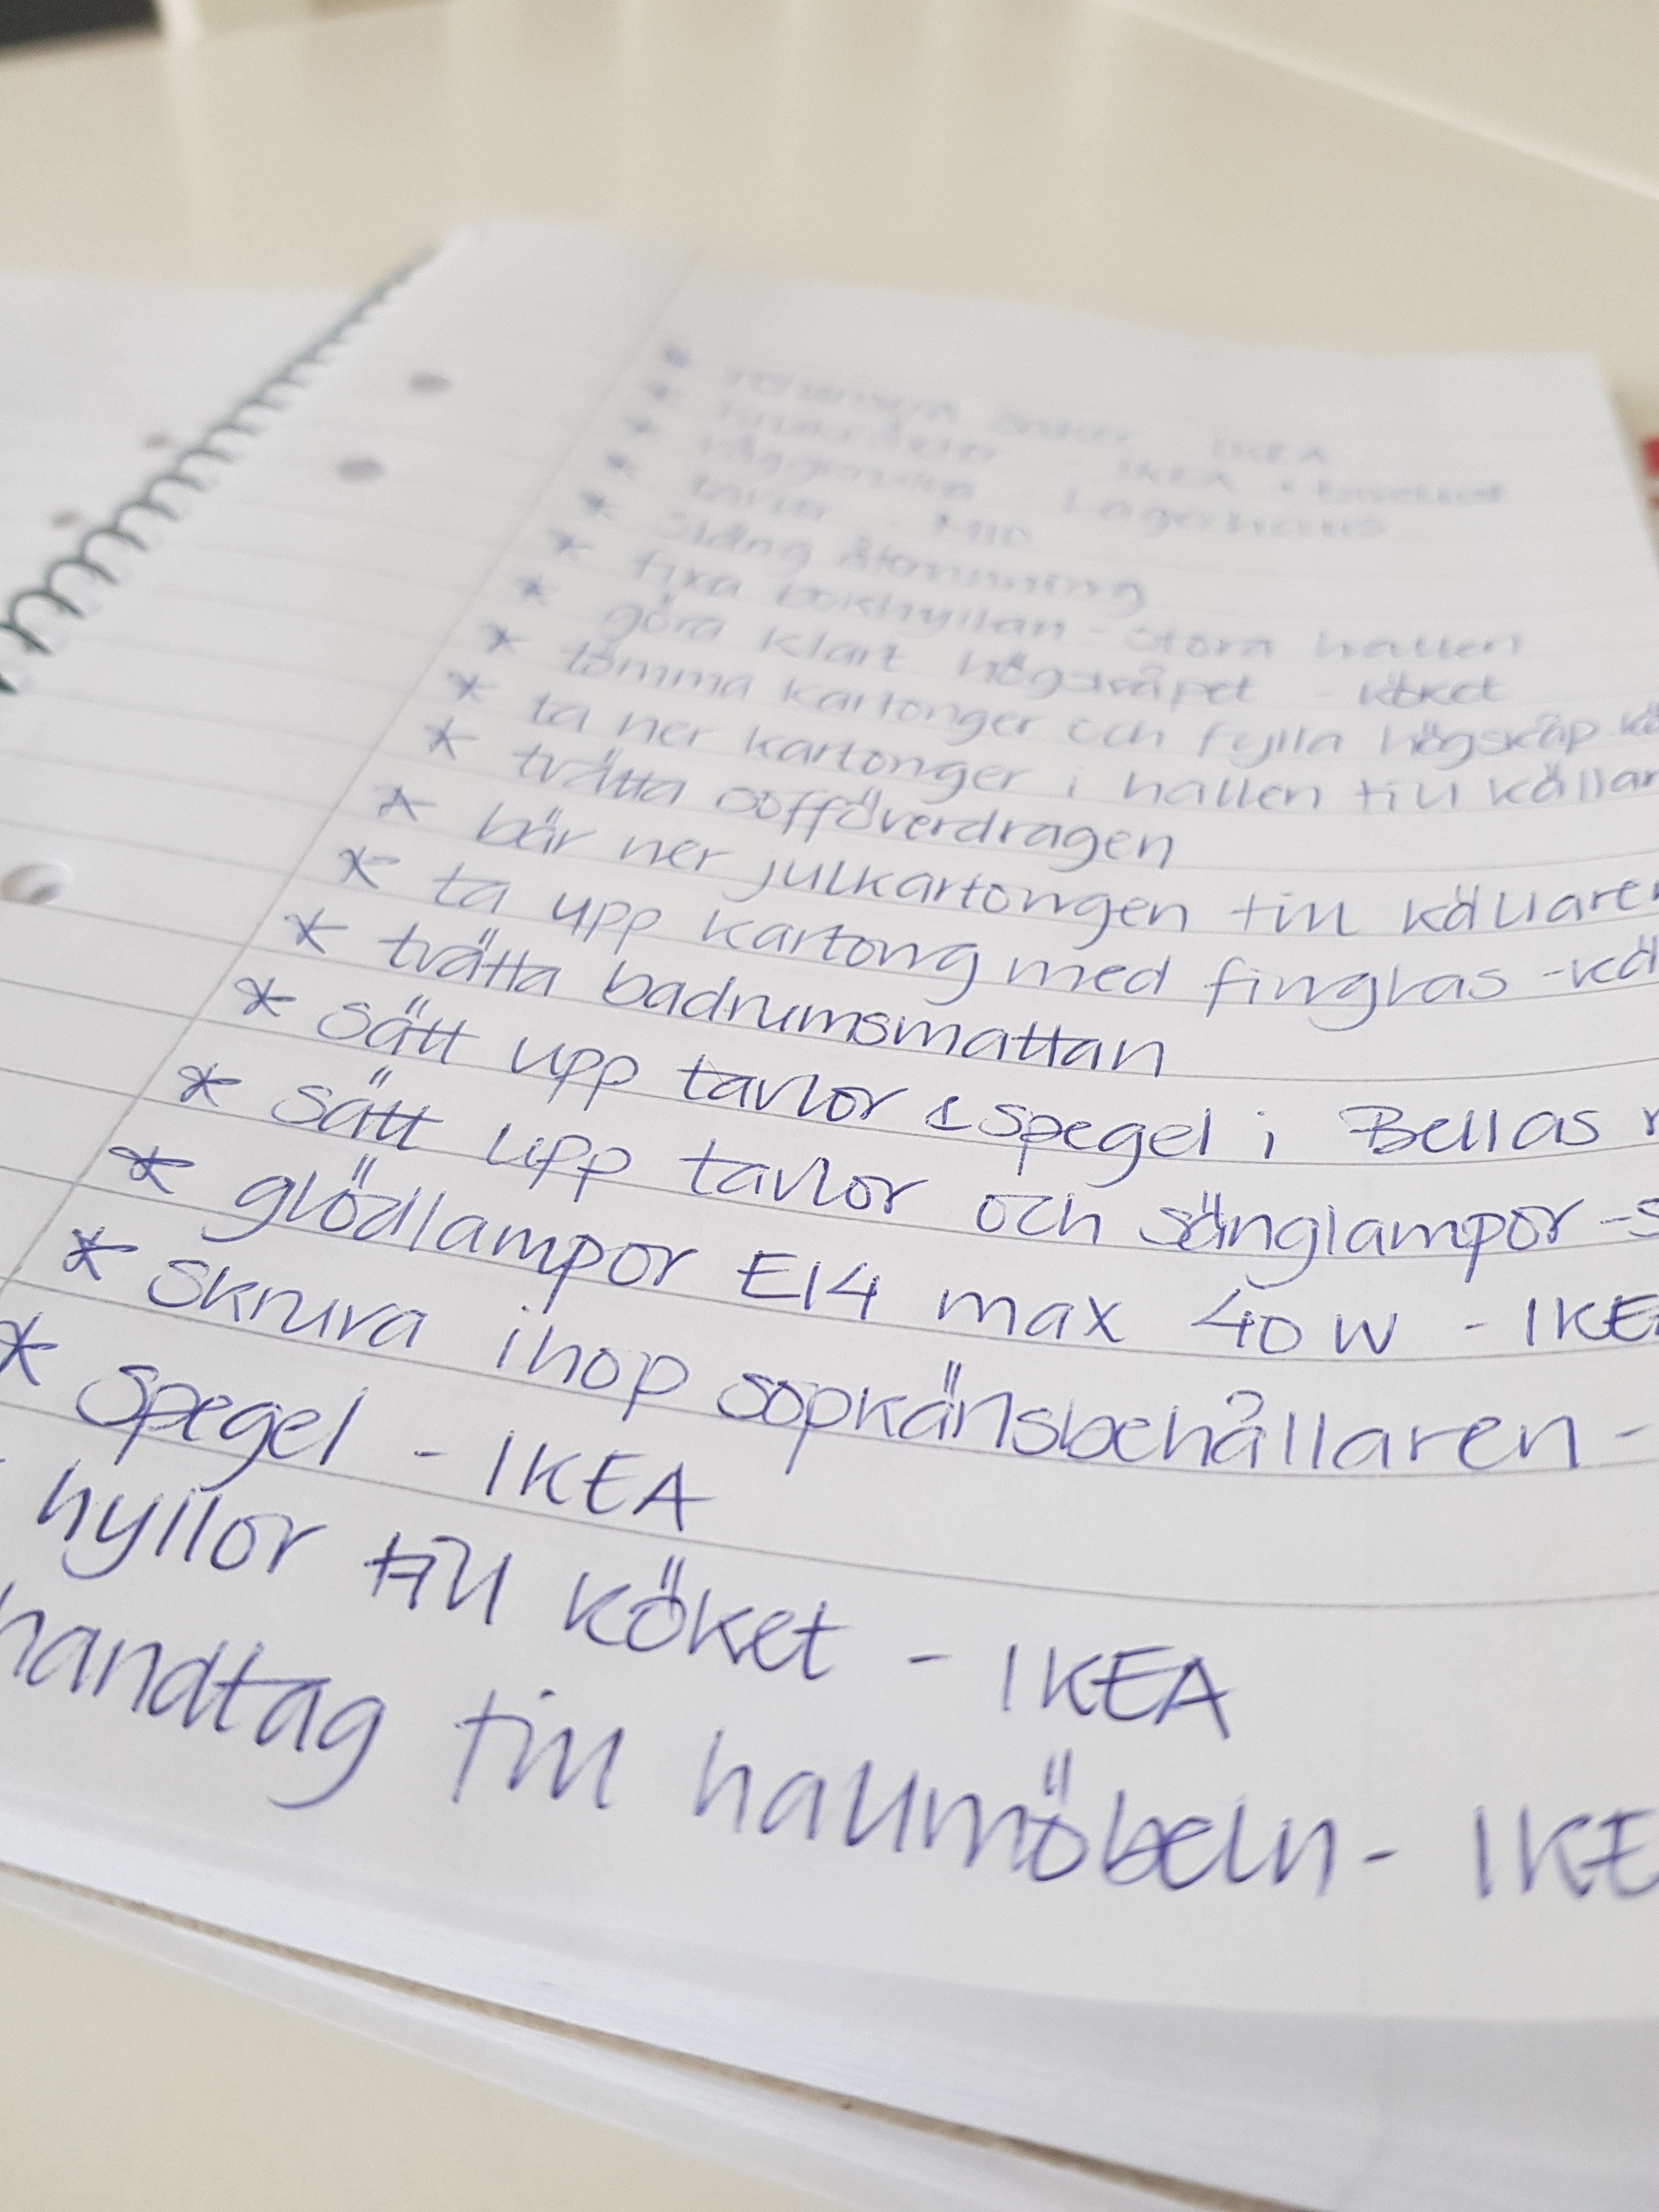 * - IKEA
* - IKEA
* - Lagerhaus
* tavlor - Mio
* släng återvinning
* fixa bokhyllan - stora hallen
* göra klart högskåpet - köket
* tömma kartonger och fylla högskåp kö
* ta ner kartonger i hallen till källar
* tvätta sofföverdragen
* bär ner julkartongen till källaren
* ta upp kartong med finglas - kä
* tvätta badrumsmattan
* sätt upp tavlor & spegel i Bellas r
* sätt upp tavlor och sänglampor - s
* glödlampor E14 max 40 W - IKEA
* skruva ihop sopkänsbehållaren -
* spegel - IKEA
hyllor till köket - IKEA
handtag till hallmöbeln - IKE